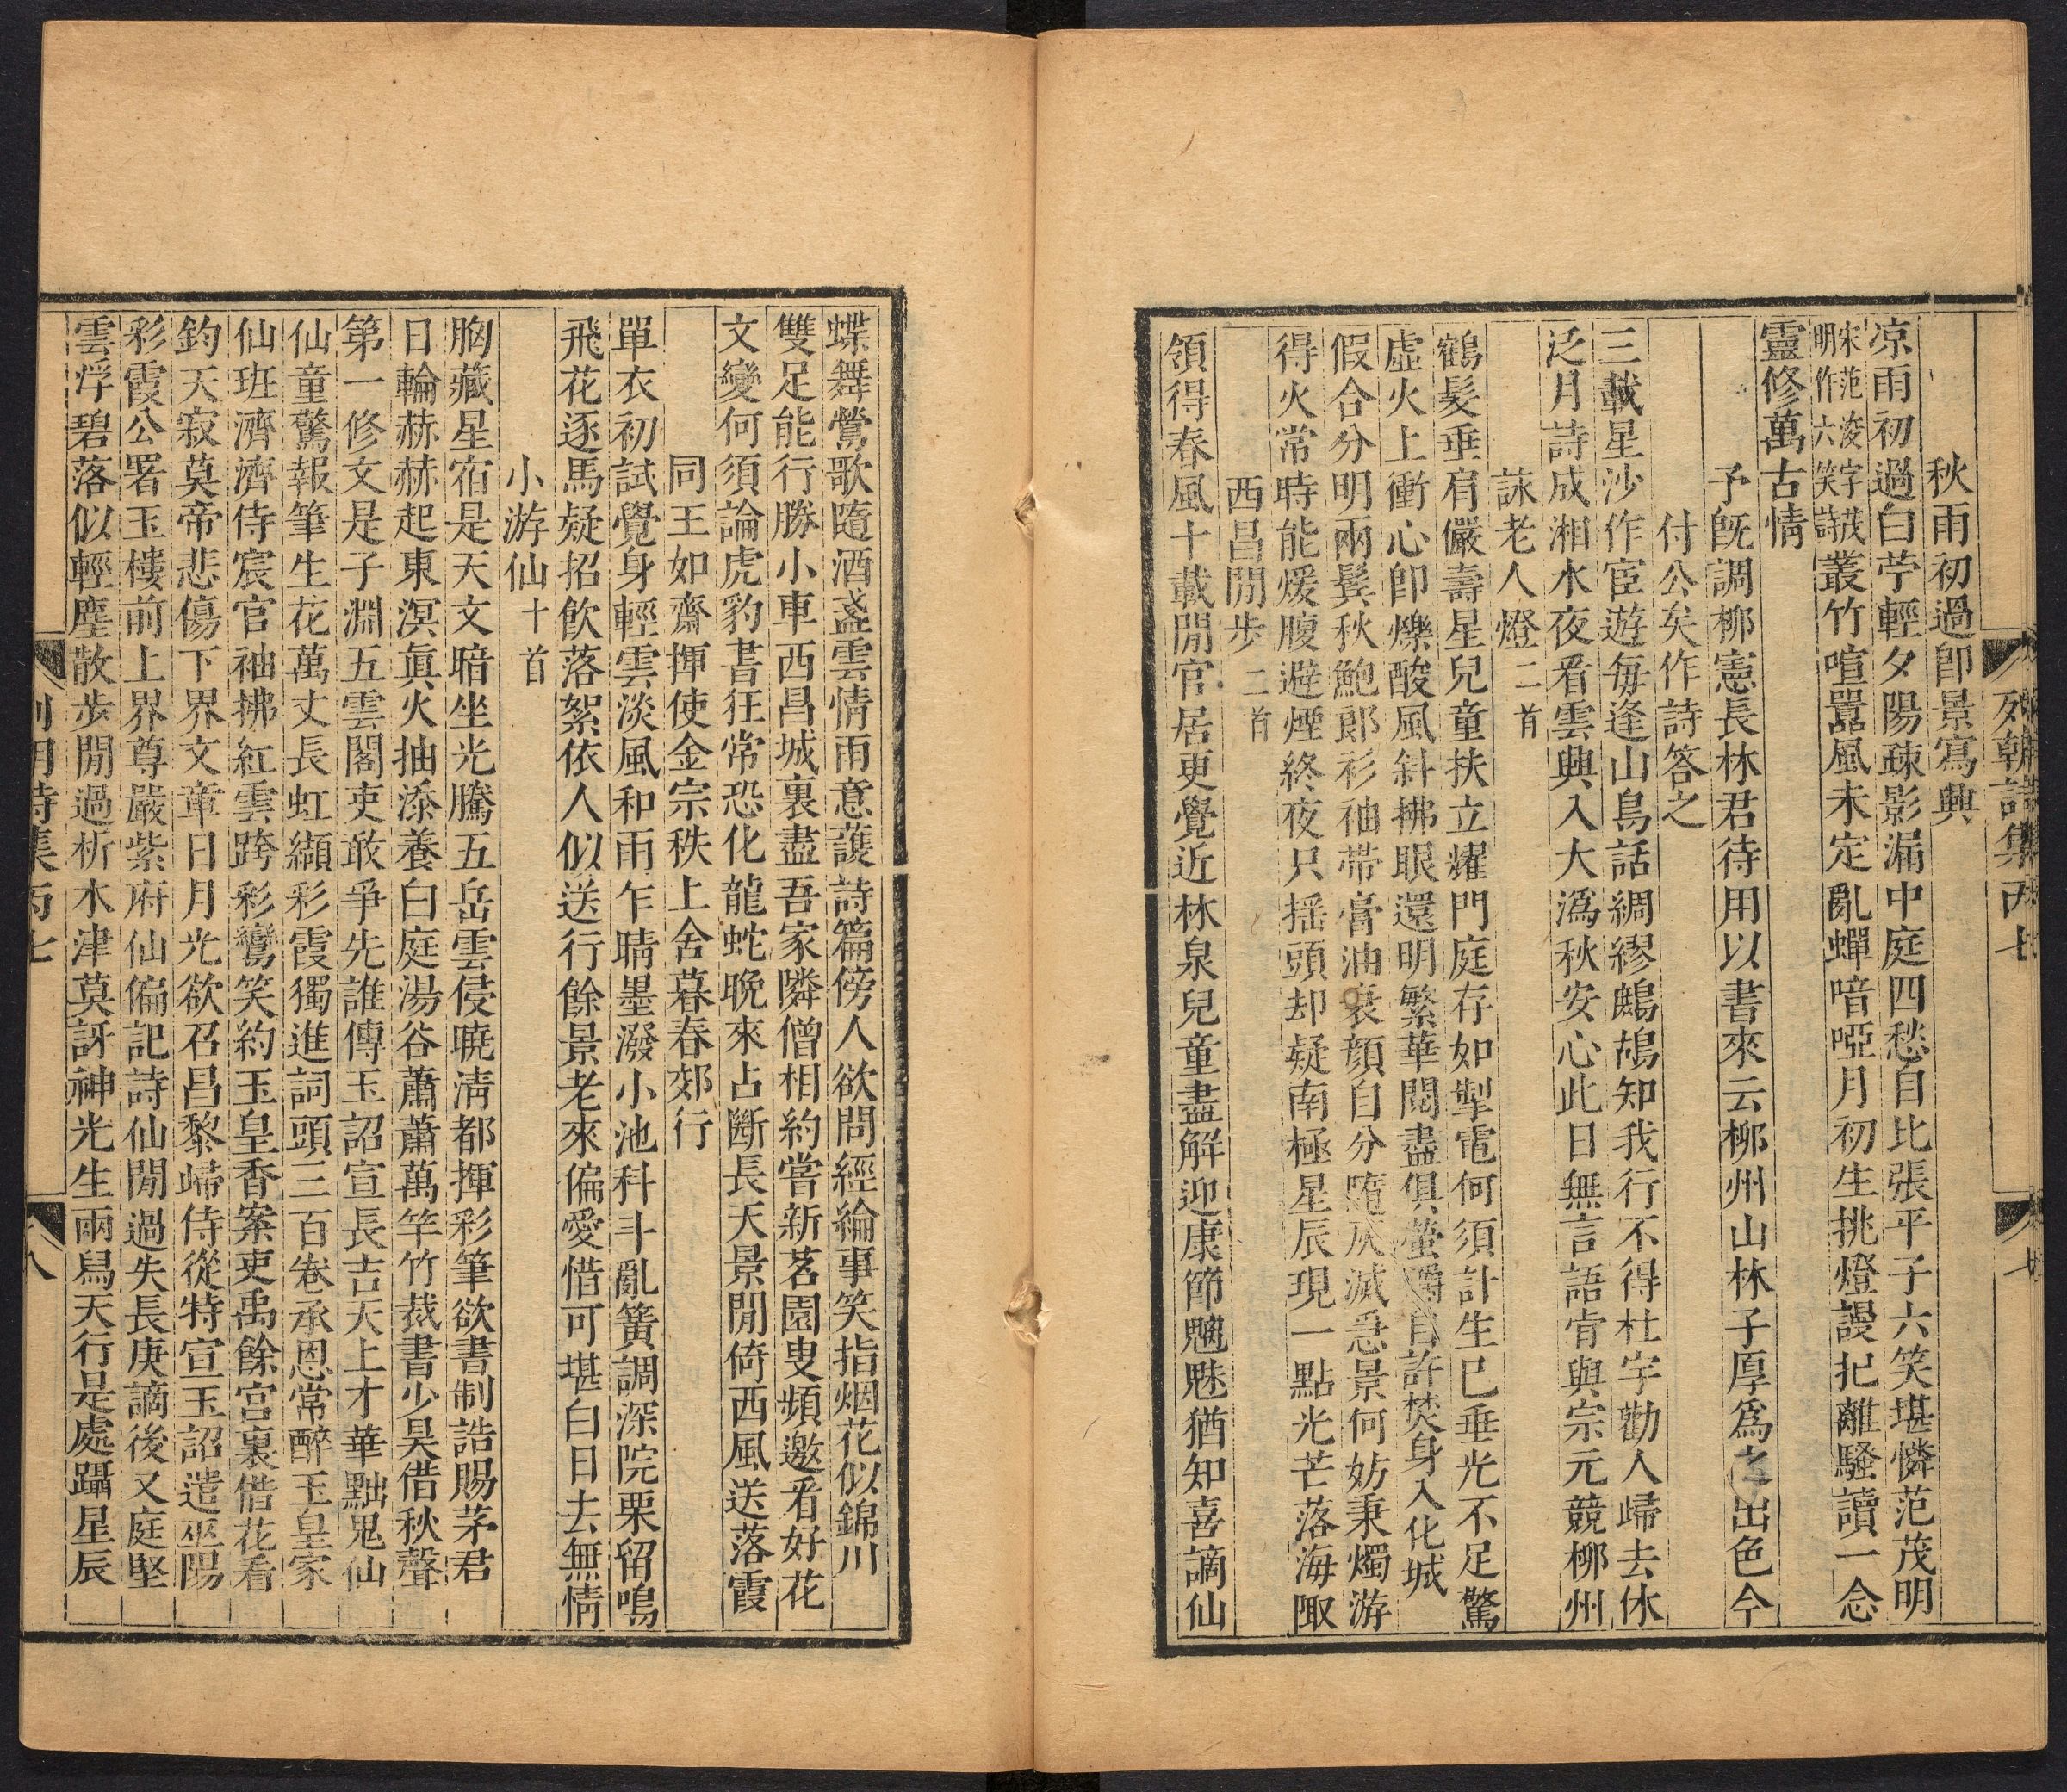 列朝詩集丙七
秋雨初過卽景寫興
凉雨初過白苧輕夕陽疎影漏中庭四愁自比張平子六笑堪憐范茂明
宋范浚字茂明作六笑詩叢竹喧囂風未定亂蟬喑啞月初生挑燈謾把離騷讀一念
靈修萬古情
予旣調柳憲長林君待用以書來云柳州山林子厚爲之出色今
付公矣作詩答之
三載星沙作宦遊每逢山鳥話綢繆鷓鴣知我行不得杜宇勸人歸去休
泛月詩成湘水夜看雲興入大潙秋安心此日無言語肯與宗元競柳州
詠老人燈二首
鶴髮垂肩儼壽星兒童扶立耀門庭存如掣電何須計生已垂光不足驚
虛火上衝心卽爍酸風斜拂眼還明繁華閱盡俱螢爝自許焚身入化城
假合分明兩鬂秋鮑郎衫袖帶膏油衰顔自分隨灰滅急景何妨秉燭游
得火常時能煖腹避煙終夜只揺頭却疑南極星辰現一點光芒落海陬
西昌閒步二首
領得春風十載閒官居更覺近林泉兒童盡解迎康節魑魅猶知喜謫仙
蝶舞鶯歌隨酒盞雲情雨意護詩篇傍人欲問經綸事笑指烟花似錦川
雙足能行勝小車西昌城裏盡吾家隣僧相約嘗新茗園叟頻邀看好花
文變何須論虎豹書狂常恐化龍蛇晚來占斷長天景閒倚西風送落霞
同王如齋揮使金宗秩上舍暮春郊行
單衣初試覺身輕雲淡風和雨乍晴墨潑小池科斗亂簧調深院栗留鳴
飛花逐馬疑招飲落絮依人似送行餘景老來偏愛惜可堪白日去無情
小游仙十首
胸藏星宿是天文暗坐光騰五岳雲侵曉淸都揮彩筆欲書制誥賜茅君
日輪赫赫起東溟眞火抽添養白庭湯谷蕭蕭萬竿竹裁書少昊借秋聲
第一修文是子淵五雲閣吏敢爭先誰傳玉詔宣長吉天上才華黜鬼仙
仙童驚報筆生花萬丈長虹纈彩霞獨進詞頭三百卷承恩常醉玉皇家
仙班濟濟侍宸官袖拂紅雲跨彩鸞笑約玉皇香案吏禹餘宮裏借花看
鈞天寂莫帝悲傷下界文章日月光欲召昌黎歸侍從特宣玉詔遣巫陽
彩霞公署玉樓前上界尊嚴紫府仙偏記詩仙閒過失長庚謫後又庭堅
雲浮碧落似輕塵散步閒過析木津莫訝神光生兩舄天行是處躡星辰
列朝詩集丙七
八